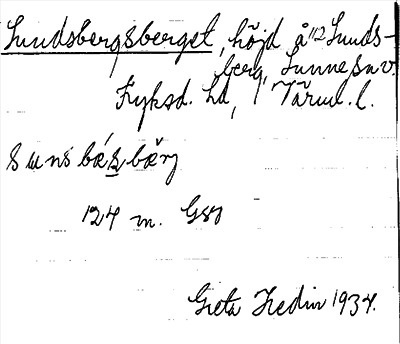 Sundsbergsberget, höjd å 1/2 Sunds-
berg, Sunne sn v.
Fryksd. hd, Värml. l.
sunsbæ̀sbæ̌rj
124 m. GSK
Greta Hedin 1934.